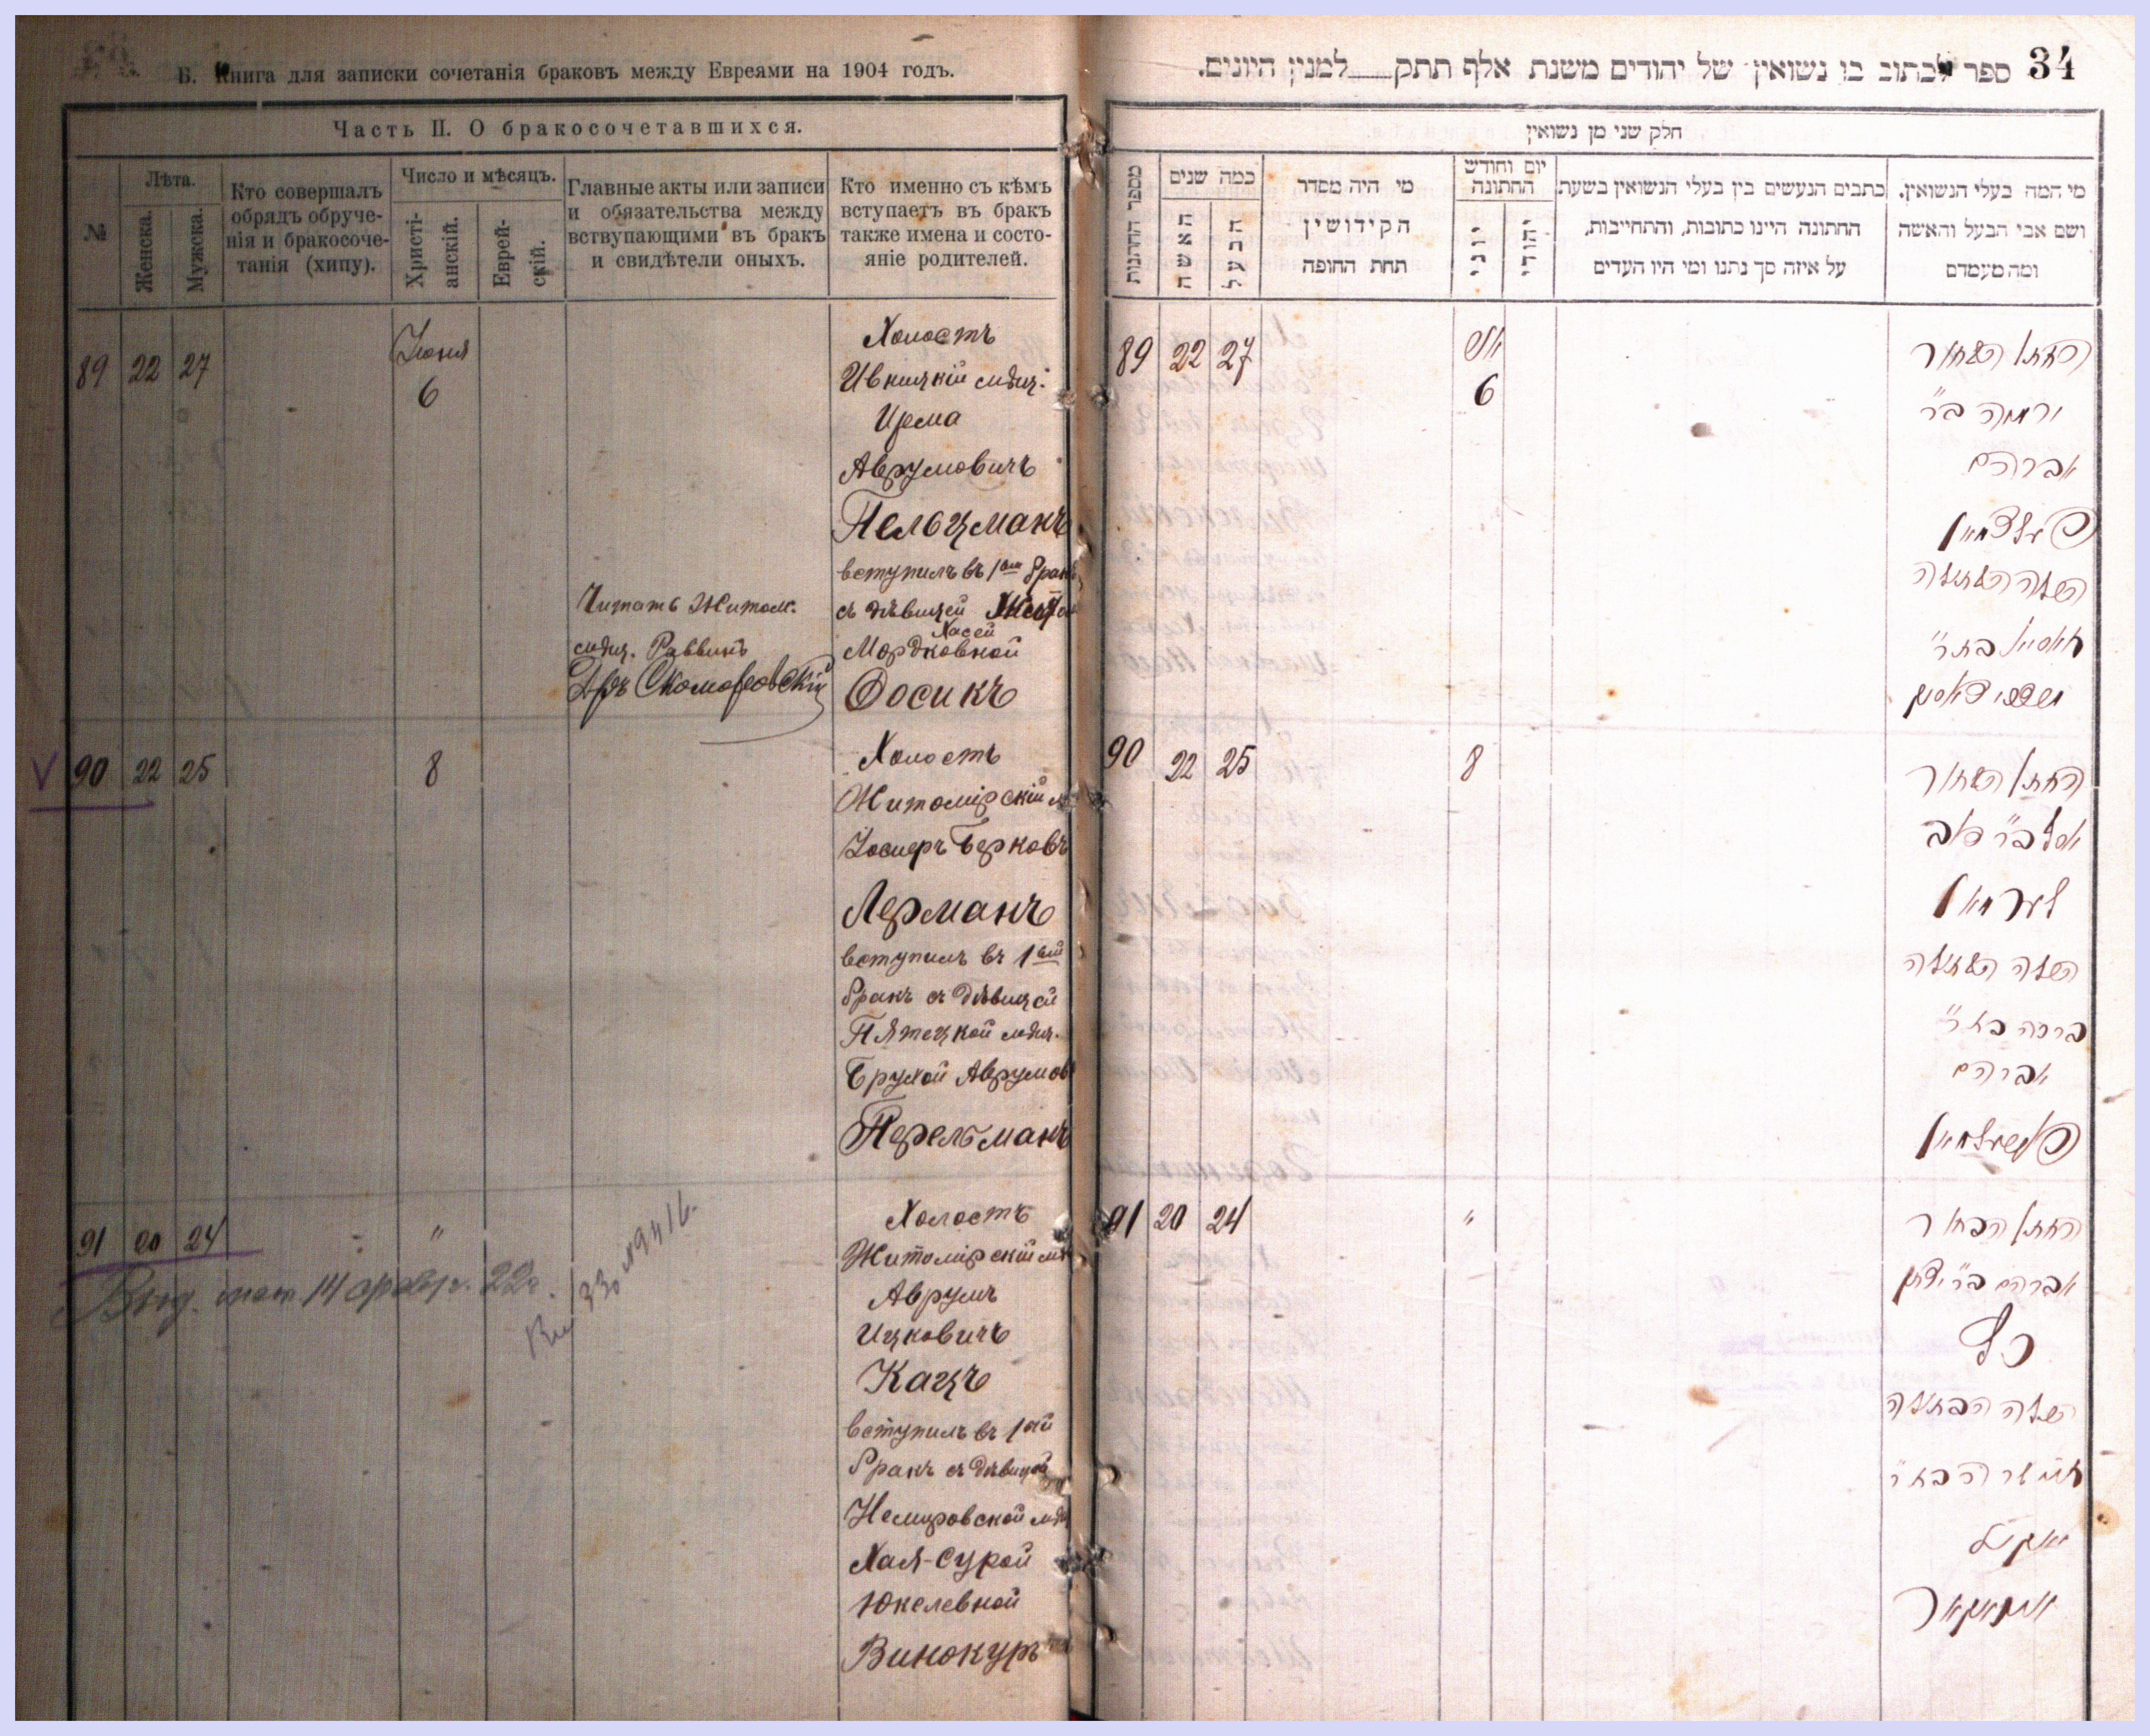 Б. Книга для записки сочетанія браковъ между Евреями на 1904 годъ.
Часть II. О бракосочетавшихся.
№
Лѣта.
Женска.
Мужска.
Кто совершалъ
обрядъ обруче-
нія и бракосоче-
танія (хипу).
Число и мѣсяцъ.
Христі-
анскій.
Еврей-
скій.
Главные акты или записи
и обязательства между
вствупающими въ бракъ
и свидѣтели оныхъ.
Кто именно съ кѣмъ
вступаетъ въ бракъ
также имена и состо-
яніе родителей.
89 22 27
Июня
6
Холостъ
Ивницкій мѣщ.
Ирема
Аврумовичъ
Пельцманъ
вступилъ въ 1ый бракъ
съ дѣвицей
Хасей
Мордковной
Фосикъ
Читать Житом.
мѣщ. Раввинъ
Дръ Скомаровскій
V 90 22 25
8
Холостъ
Житомірскій м
Іосперъ Берковъ
Лерманъ
вступилъ въ 1ый
бракъ съ дѣвицей
Пятецкой мѣщ.
Брухой Аврумов
Перельманъ
91 20 24
"
Выд. 14 22г.
Холостъ
Житомірскій мѣ
Аврумъ
Ицковичъ
Кацъ
вступилъ въ 1ый
бракъ съ дѣвицей
Немировской мѣщ
Хая-Сурой
Юкелевной
Винокуръ
34
ספר לכתוב בו נשואין של יהודים משנת אלף תתק למנין היונים.
חלק שני מן נשואין
מספר החתנות
כמה שנים
האשה
הבעל
מי היה מסדר
הקידושין
תחת החופה
יום וחודש
החתונה
יוני
יהודי
כתבים הנעשים בין בעלי הנשואין בשעת
החתונה היינו כתובות, והתחייבות,
על איזה סך נתנו ומי היו העדים
מי המה בעלי הנשואין.
ושם אבי הבעל והאשה
ומה מעמדם
89 22 27
6
החתן הבחור
ירמיה ב"ר
אברהם
פעלצמאן
הכלה הבתולה
חאסיא בת ר'
90 22 25
8
החתן הבחור
לערמאן
הכלה הבתולה
ברכה בת ר'
אברהם
פערעלמאן
91 20 24
"
החתן הבחור
אברהם ב"ר יצחק
כץ
הכלה הבתולה
חי' שרה בת ר'
יאקיל